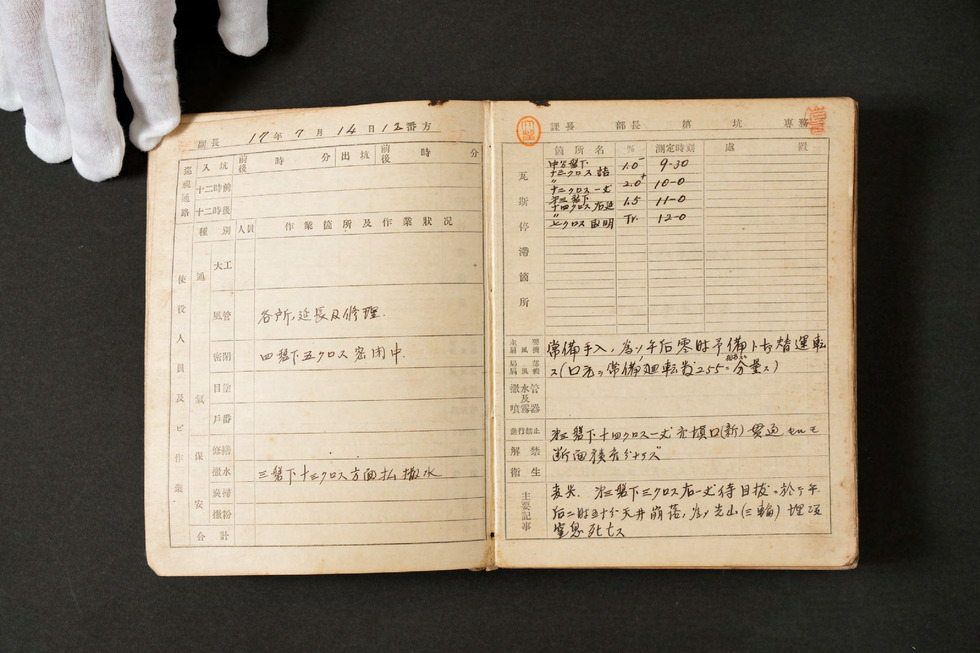 副長 17年7月14日12番方
巡視通路 入坑 前後 時 分 出坑 前後 時 分
十二時前
十二時後
使役人員及ビ作業
種別 人員 作業箇所及作業狀況
通氣
大工
風管 各所ノ延長及修理.
密閉 四盤下五クロス密閉中.
目塗
戶番
保安
修繕
撒水 三盤下十三クロス方面払撒水
炭掃
撒粉
合計
課長 部長 第 坑 專務
瓦斯停滯箇所
箇所名 % 測定時刻 處置
1.0 9-30
十二クロス一丈 2.0 10-0
十四クロス右延 1.5 11-0
七クロス Tr. 12-0
主要扇風機 常備手入ノ為メ午后零時予備ト切替運転
局部扇風機 ス(口元ノ常備廻転数255 分量ス)
撒水管及噴霧器
發行禁止 㐧三盤下十四クロス一丈 坑口(新)貫通セルモ
解禁 断面積充分ナラズ
衛生
主要記事
㐧三盤下三クロス右一丈 目抜ニ於テ午
后二時五十分天井崩落ノ為メ光山(三輪)埋没
窒息死亡ス